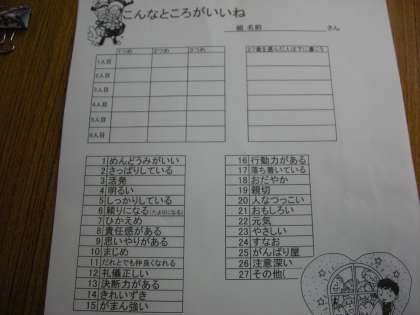 こんなところがいいね
組 名前 さん
1つめ 2つめ 3つめ
1人目
2人目
3人目
4人目
5人目
6人目
27番を選んだ人は下に書こう
1 めんどうみがいい
2 さっぱりしている
3 活発
4 明るい
5 しっかりしている
6 頼りになる(たよりになる)
7 ひかえめ
8 責任感がある
9 思いやりがある
10 まじめ
11 だれとでも仲良くなれる
12 礼儀正しい
13 決断力がある
14 きれいずき
15 がまん強い
16 行動力がある
17 落ち着いている
18 おだやか
19 親切
20 人なつっこい
21 おもしろい
22 元気
23 やさしい
24 すなお
25 がんばり屋
26 注意深い
27 その他(